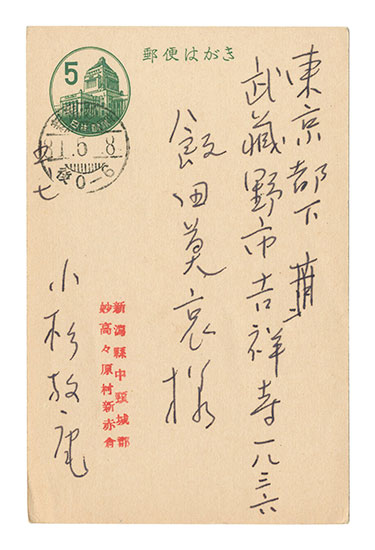 郵便はがき
5
日本郵便
東京都下
武藏野市吉祥寺一八三六
飯田莫哀様
新潟縣中頸城郡
妙高々原村新赤倉
小杉放庵